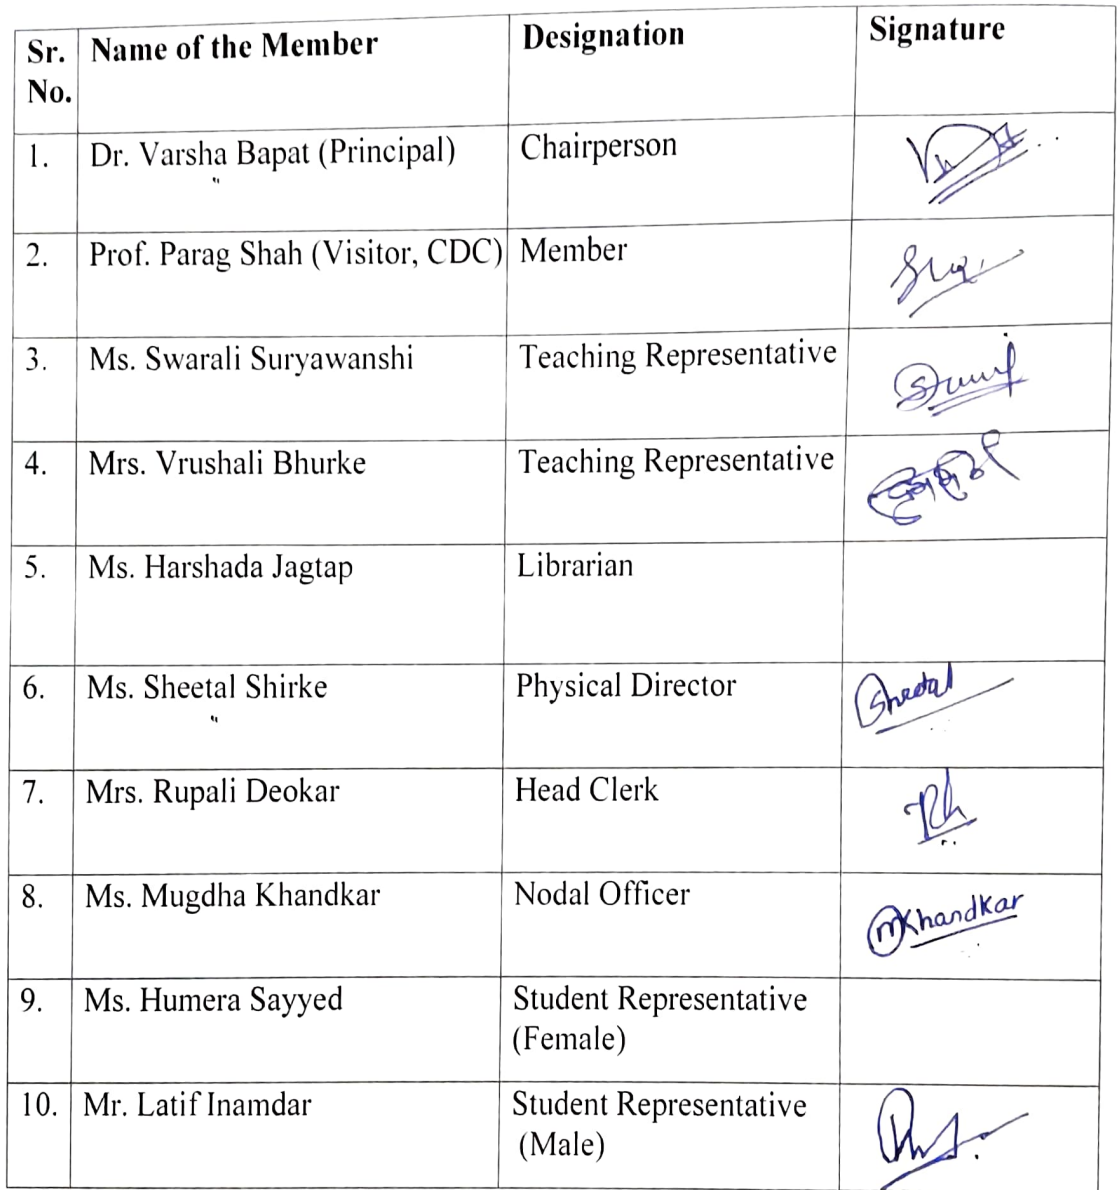 Sr. No. Name of the Member Designation Signature
1. Dr. Varsha Bapat (Principal) Chairperson
2. Prof. Parag Shah (Visitor, CDC) Member
3. Ms. Swarali Suryawanshi Teaching Representative
4. Mrs. Vrushali Bhurke Teaching Representative
5. Ms. Harshada Jagtap Librarian
6. Ms. Sheetal Shirke Physical Director Sheetal
7. Mrs. Rupali Deokar Head Clerk
8. Ms. Mugdha Khandkar Nodal Officer MKhandkar
9. Ms. Humera Sayyed Student Representative
(Female)
10. Mr. Latif Inamdar Student Representative
(Male)